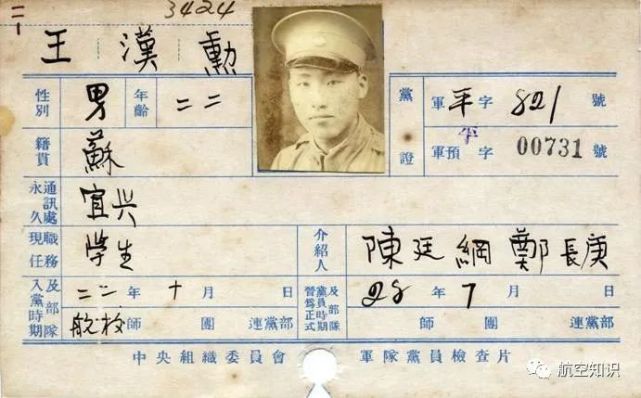 二-1
3424
王漢勳
性別 男 年齡 二二 黨證 軍平字 821 號
籍貫 蘇 軍預平字 00731 號
永久通訊處 宜兴
現任職務 學生 介紹人 陳廷綱 鄭長庚
入黨時期及部隊 二二年十月 日 黨員嘗爲正式時期及部隊 28年7月 日
航校師 團 連黨部 師 團 連黨部
中央組織委員會 軍隊黨員檢查片
航空知识